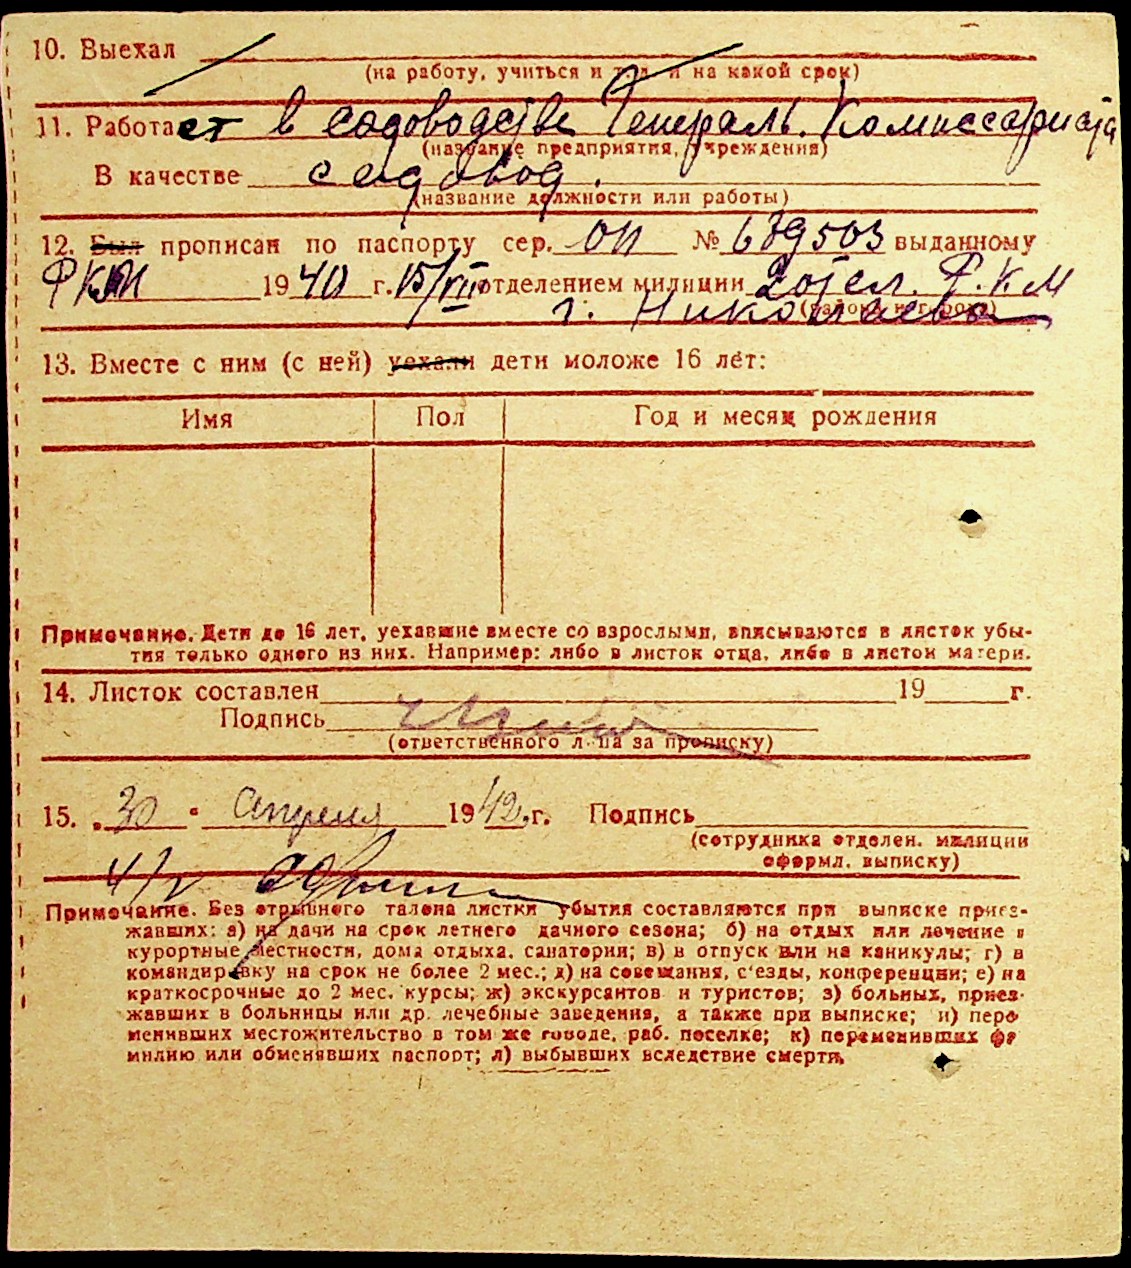 10. Выехал
(на работу, учиться и т. д. и на какой срок)
11. Работает в садоводстве Генераль. Комиссариата
(название предприятия, учреждения)
В качестве садовод.
(название должности или работы)
12. Был прописан по паспорту сер. ОП № 639503 выданному
1940 г. 15/VIII отделением милиции 2 отел. Р.К.М
(район и город)
г. Николаева
13. Вместе с ним (с ней) уехали дети моложе 16 лет:
Имя Пол Год и месяц рождения
Примечание. Дети до 16 лет, уехавшие вместе со взрослыми, вписываются в листок убы-
тия только одного из них. Например: либо в листок отца, либо в листок матери.
14. Листок составлен 19 г.
Подпись
(ответственного лица за прописку)
15. „30" апреля 1942 г. Подпись
(сотрудника отделен. милиции
оформл. выписку)
Примечание. Без отрывного талона листки убытия составляются при выписке приез-
жавших: а) на дачи на срок летнего дачного сезона; б) на отдых или лечение в
курортные местности, дома отдыха, санатории; в) в отпуск или на каникулы; г) в
командировку на срок не более 2 мес.; д) на совещания, с'езды, конференции; е) на
краткосрочные до 2 мес. курсы; ж) экскурсантов и туристов; з) больных, приез-
жавших в больницы или др. лечебные заведения, а также при выписке; и) пере
менивших местожительство в том же городе, раб. поселке; к) переменивших фа
милию или обменявших паспорт; л) выбывших вследствие смерти.